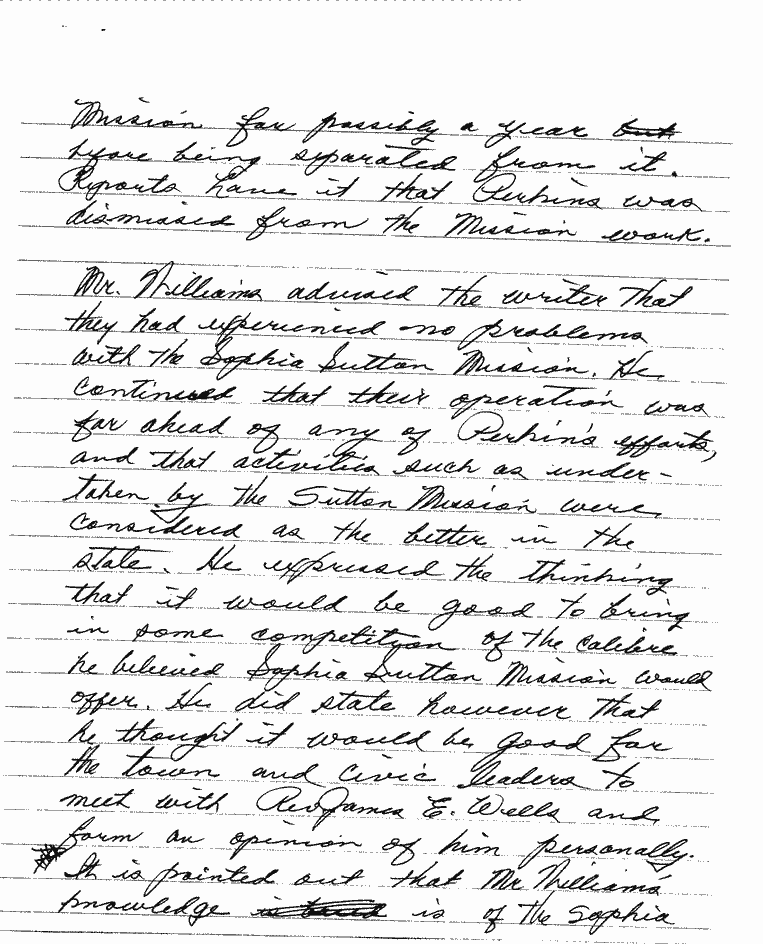 Mission for possibly a year but
before being separated from it.
Reports have it that Perkins was
dismissed from the Mission work.
Mr. Williams advised the writer that
they had experienced no problems
with the Sophia Sutton Mission. He
continued that their operation was
far ahead of any of Perkin's efforts,
and that activities such as under-
taken by the Sutton Mission were
considered as the better in the
state. He expressed the thinking
that it would be good to bring
in some competition of the calibre
he believed Sophia Sutton Mission would
offer. He did state however that
he thought it would be good for
the town and civic leaders to
meet with Rev James E. Wells and
form an opinion of him personally.
It is pointed out that Mr Williams'
knowledge is based is of the Sophia